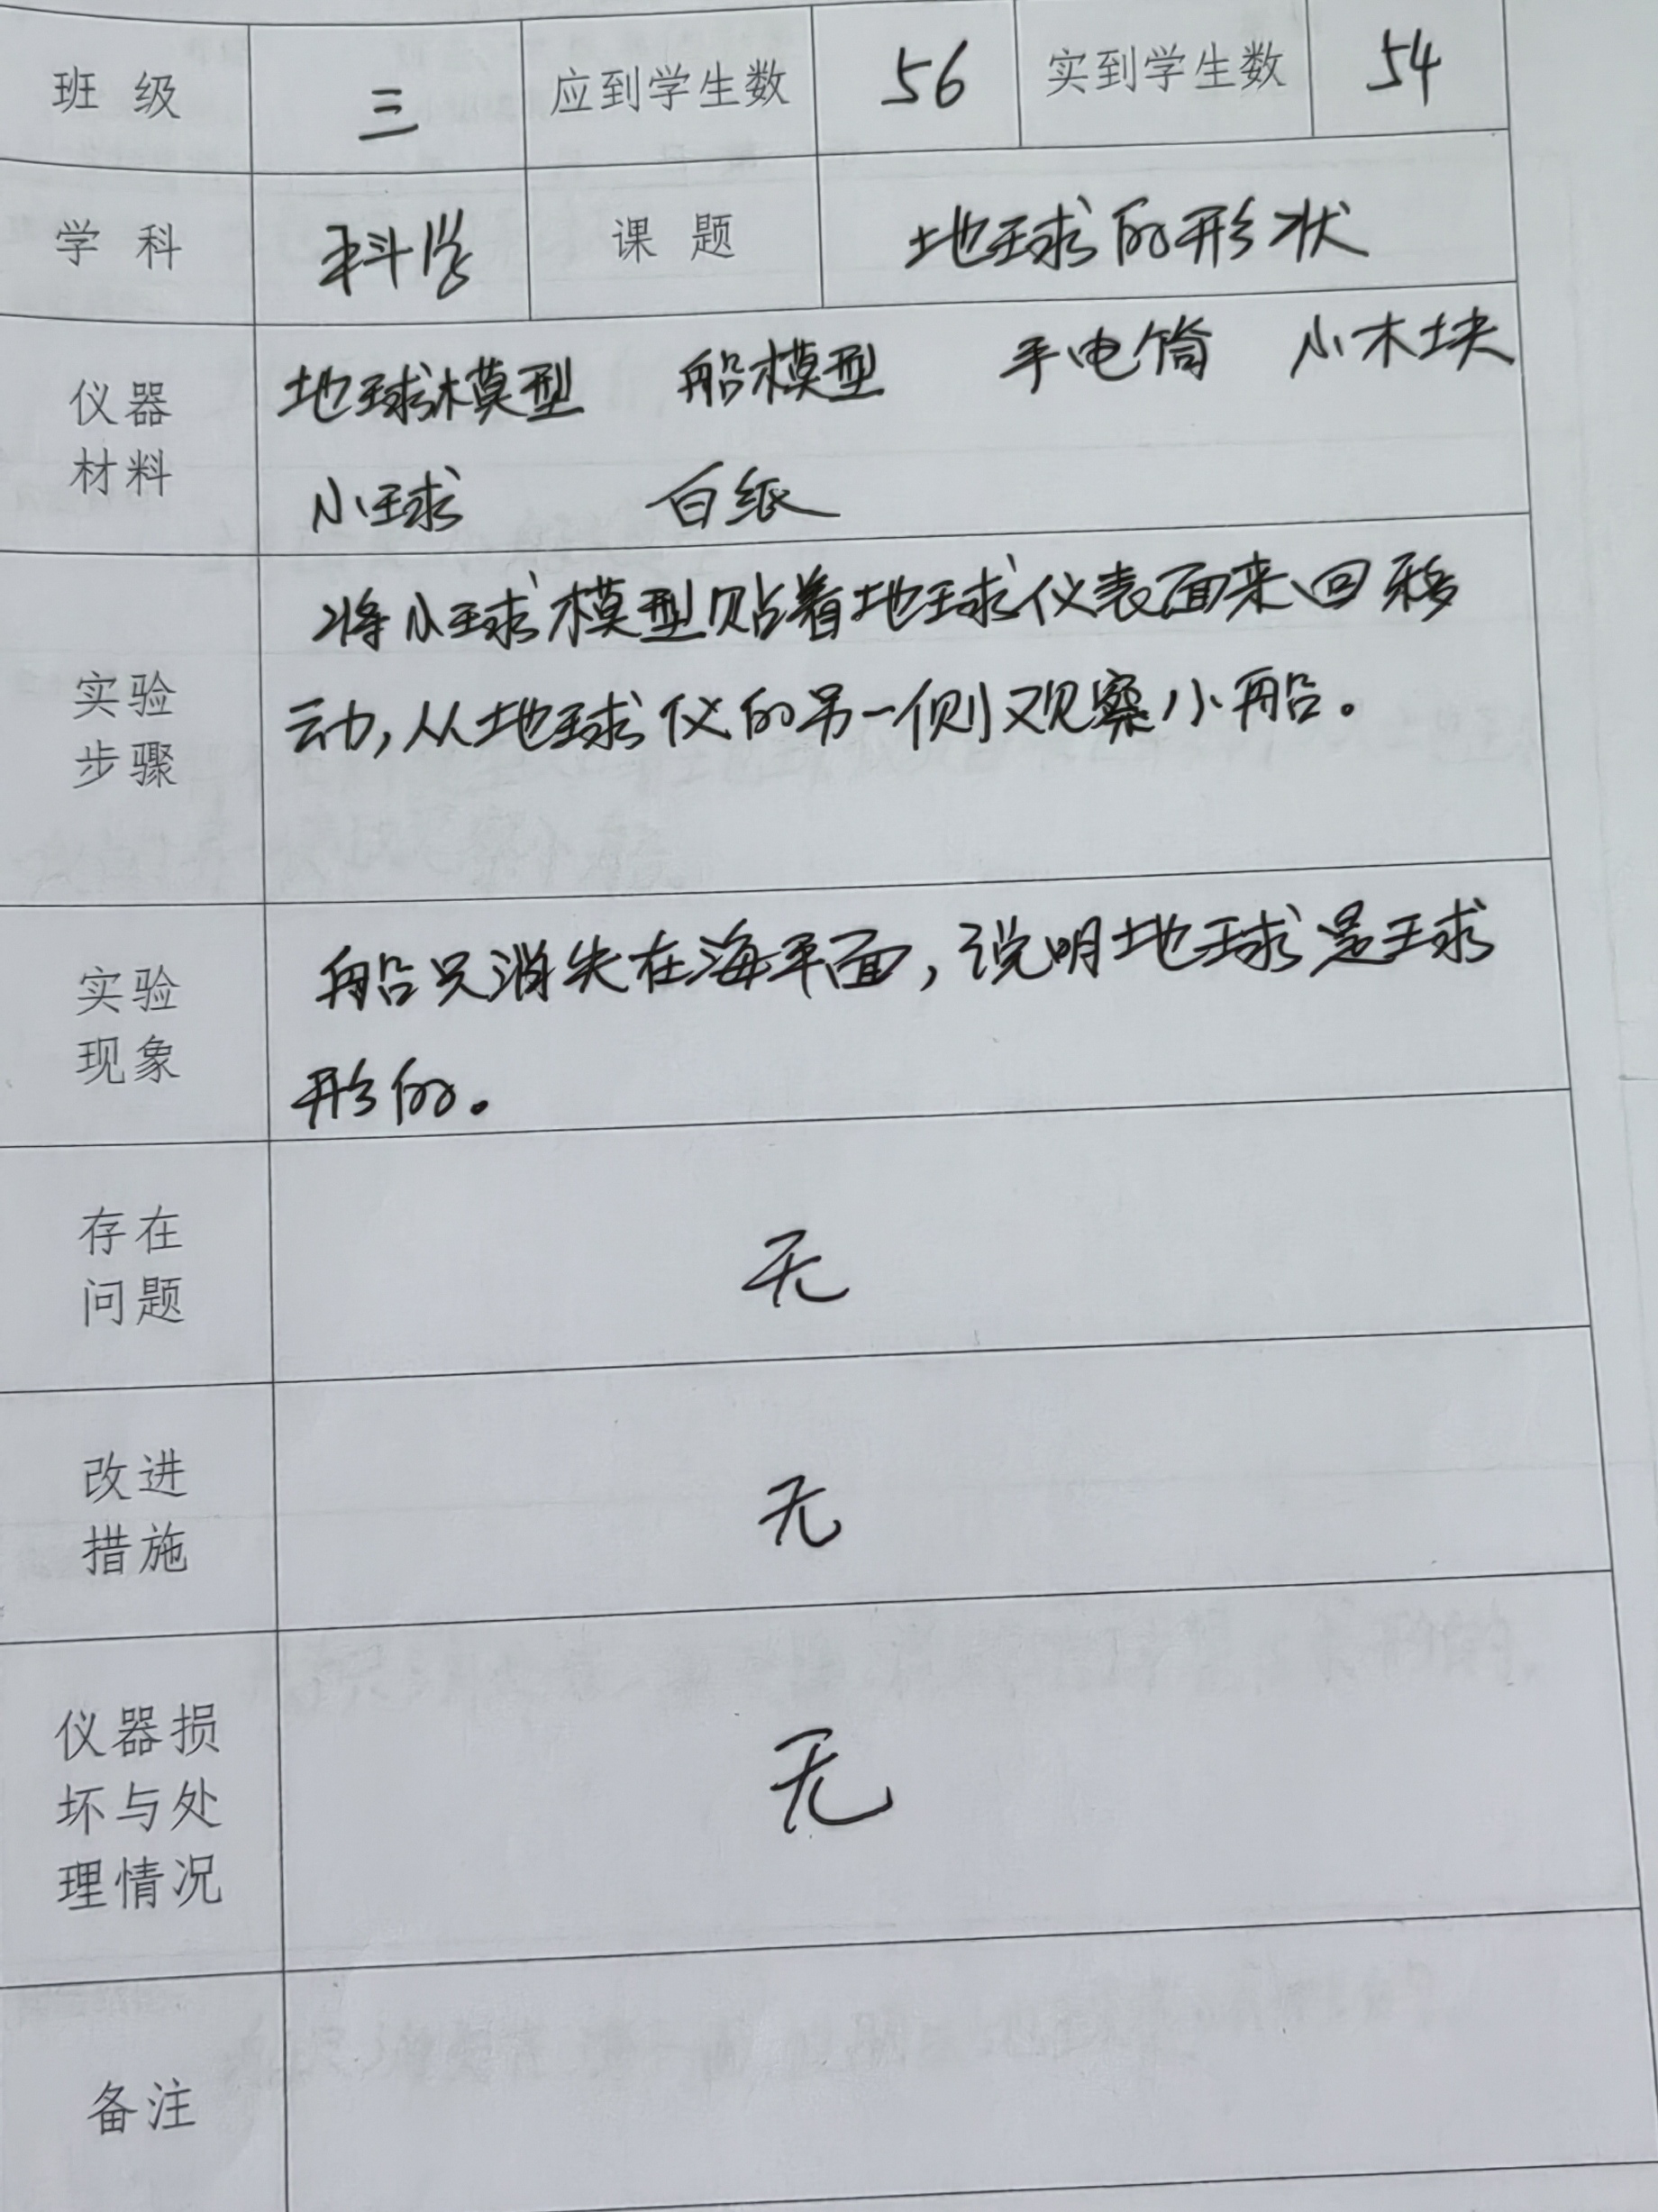 班 级 三 应到学生数 56 实到学生数 54
学 科 科学 课 题 地球的形状
仪器
材料
地球模型 船模型 手电筒 小木块
小球 白纸
实验
步骤
将小球模型贴着地球仪表面来回移
动,从地球仪的另一侧观察小船。
实验
现象
船只消失在海平面,说明地球是球
形的。
存在
问题
无
改进
措施
无
仪器损
坏与处
理情况
无
备注